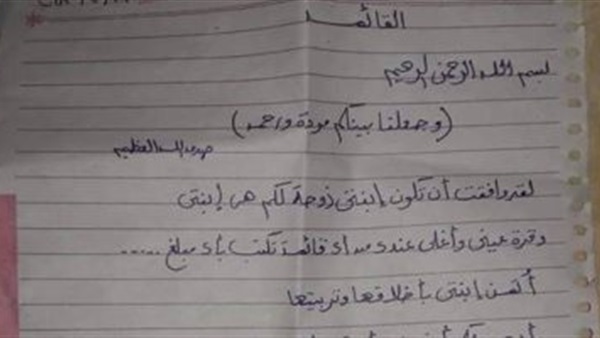 القائمة
بسم الله الرحمن الرحيم
(وجعلنا بينكم مودة ورحمة)
صدق الله العظيم
لقد وافقت أن تكون إبنتى زوجة لكم هى إبنتى
وقرة عينى وأغلى عندى من أى قائمة تكتب بأى مبلغ .....
أثمن إبنتى بأخلاقها وتربيتها